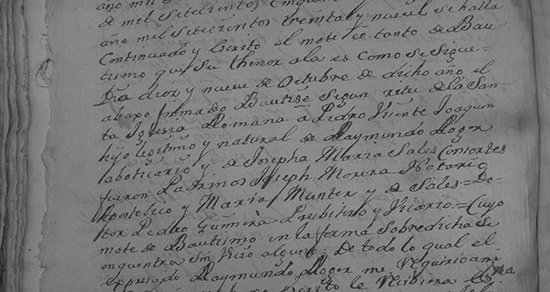 de mil Setecientos Cinquen
año mil Setecientos treinta y nueve se halla
Continuado y Escrito el mote de tanto de Bau
tismo que su thenor a la es como se sigue=
Dia diez y nueve de Octubre de dicho año el
abaxo firmado Bautize segun ritu de la San
ta Iglesia Romana à Pedro Vicente Joaquin
hijo legitimo y natural de Raymundo Roger
boticario y de Josepha Maria Sales Consortes
fueron Padrinos Joseph Morera Notario
Apostolico y Maria Munter y de Sales= Do
tor Pedro Guimera Presbitero y Vicario= Cuyo
mote de Bautismo en la forma Sobredicha se
enquentra sin vicio alguno; de todo lo qual el
expresado Raymundo Roger me requirio
Escrito le recibiera